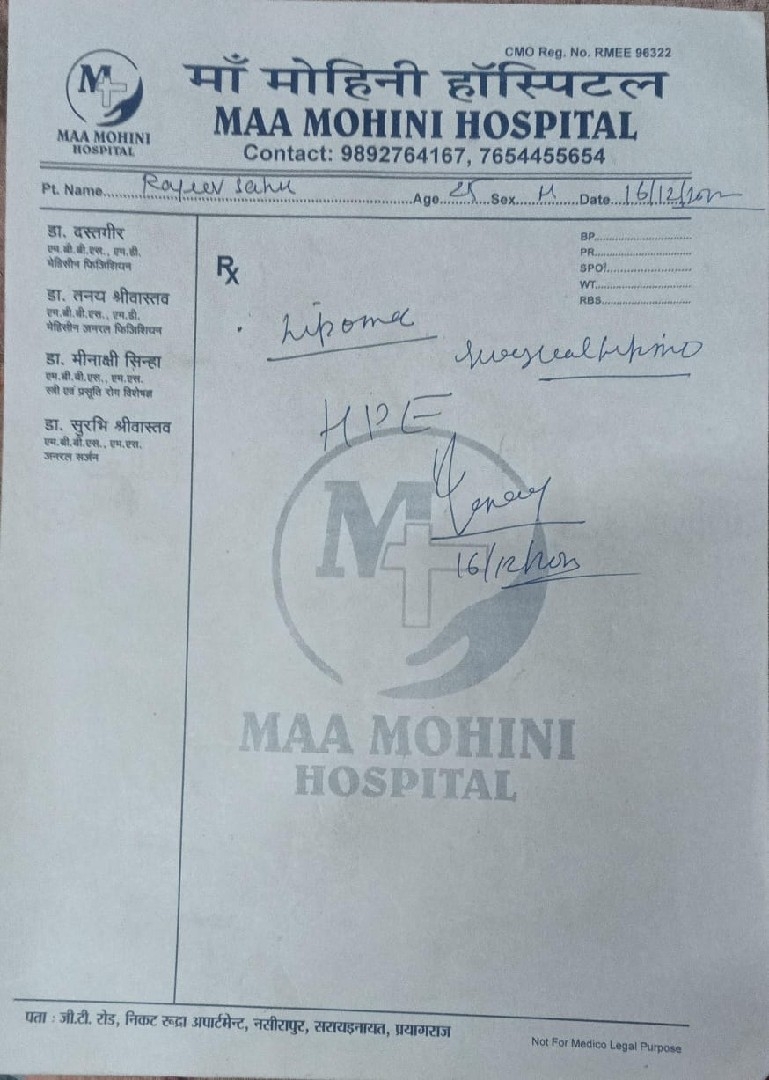 CMO Reg. No. RMEE 96322
माँ मोहिनी हॉस्पिटल
MAA MOHINI HOSPITAL
MAA MOHINI
HOSPITAL
Contact: 9892764167, 7654455654
Pt. Name Rajeev Sahu Age 25 Sex M Date 16/12/
डा. दस्तगीर
एम.बी.बी.एस., एम.डी.
मेडिसीन फिजिशियन
डा. तनय श्रीवास्तव
एम.बी.बी.एस., एम.डी.
मेडिसीन जनरल फिजिशियन
डा. मीनाक्षी सिन्हा
एम.बी.बी.एस., एम.एस.
स्त्री एवं प्रसूति रोग विशेषज्ञ
डा. सुरभि श्रीवास्तव
एम.बी.बी.एस., एम.एस.
जनरल सर्जन
BP
PR
SPO!
WT
RBS
Rx
Lipoma
HPE
16/12/
MAA MOHINI
HOSPITAL
पता : जी.टी. रोड, निकट रूद्रा अपार्टमेन्ट, नसीरापुर, सरायइनायत, प्रयागराज
Not For Medico Legal Purpose